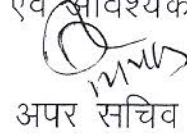 एवं आवश्यक
अपर सचिव